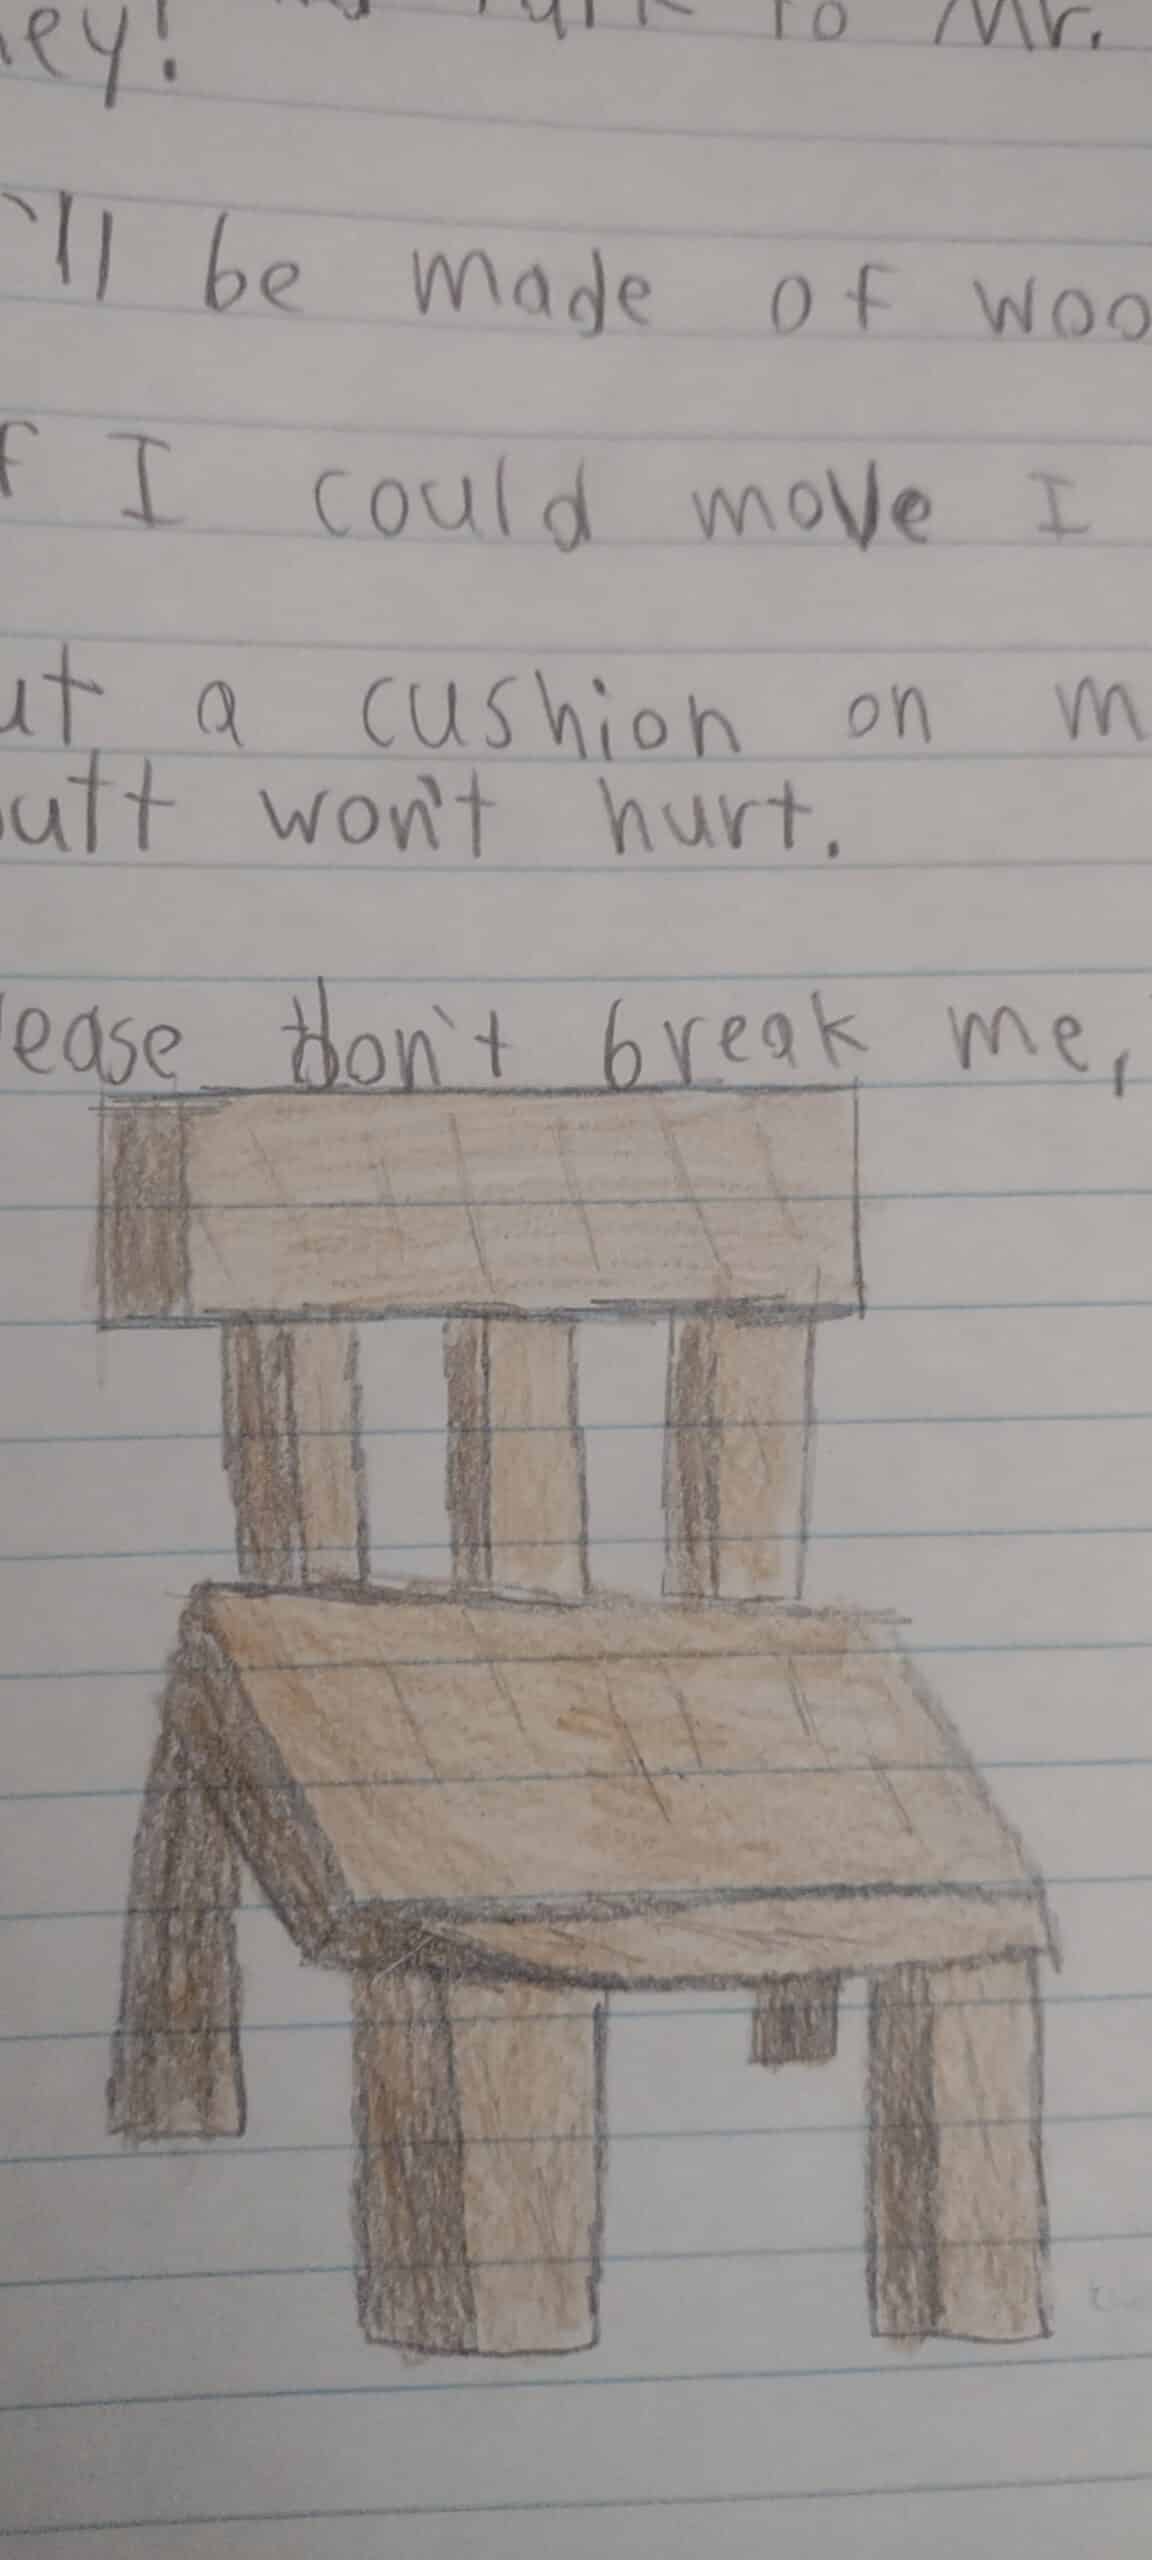 ey! to Mr.
'll be made of woo
f I could move I
ut a cushion on m
utt won't hurt.
lease don't break me,